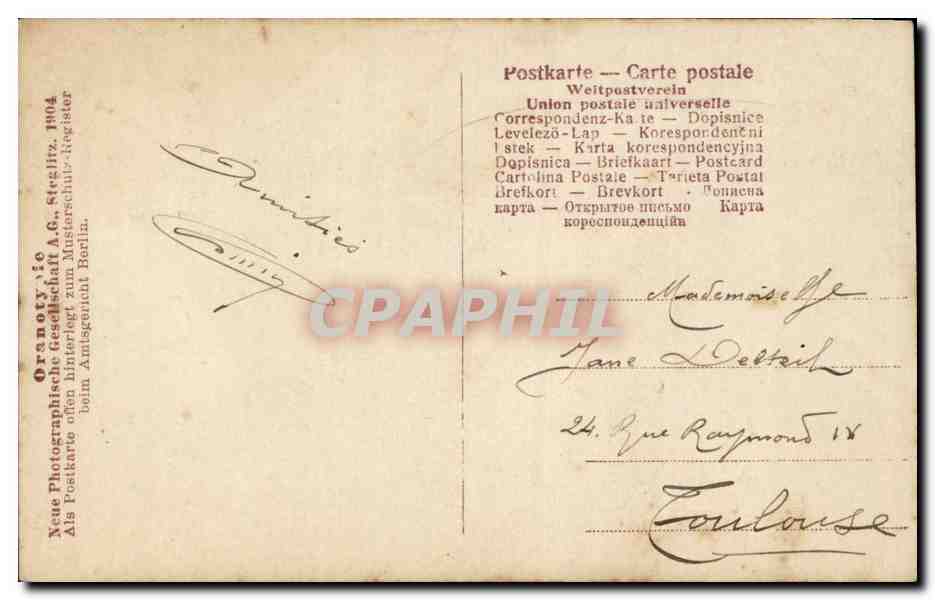 Oranotypie
Neue Photographische Gesellschaft A.G., Steglitz. 1904
Als Postkarte offen hinterlegt zum Musterschutz-Register
beim Amtsgericht Berlin.
Amitiés
Postkarte — Carte postale
Weltpostverein
Union postale universelle
Correspondenz-Karte — Dopisnice
Levelező-Lap — Korespondenční
lístek — Karta korespondencyjna
Dopisnica — Briefkaart — Postcard
Cartolina Postale — Tarjeta Postal
Brefkort — Brevkort - Дописна
карта — Открытое письмо Карта
кореспонденційна
CPAPHIL
Mademoiselle
Jane Delteil
24. Rue Raymond IV
Toulouse